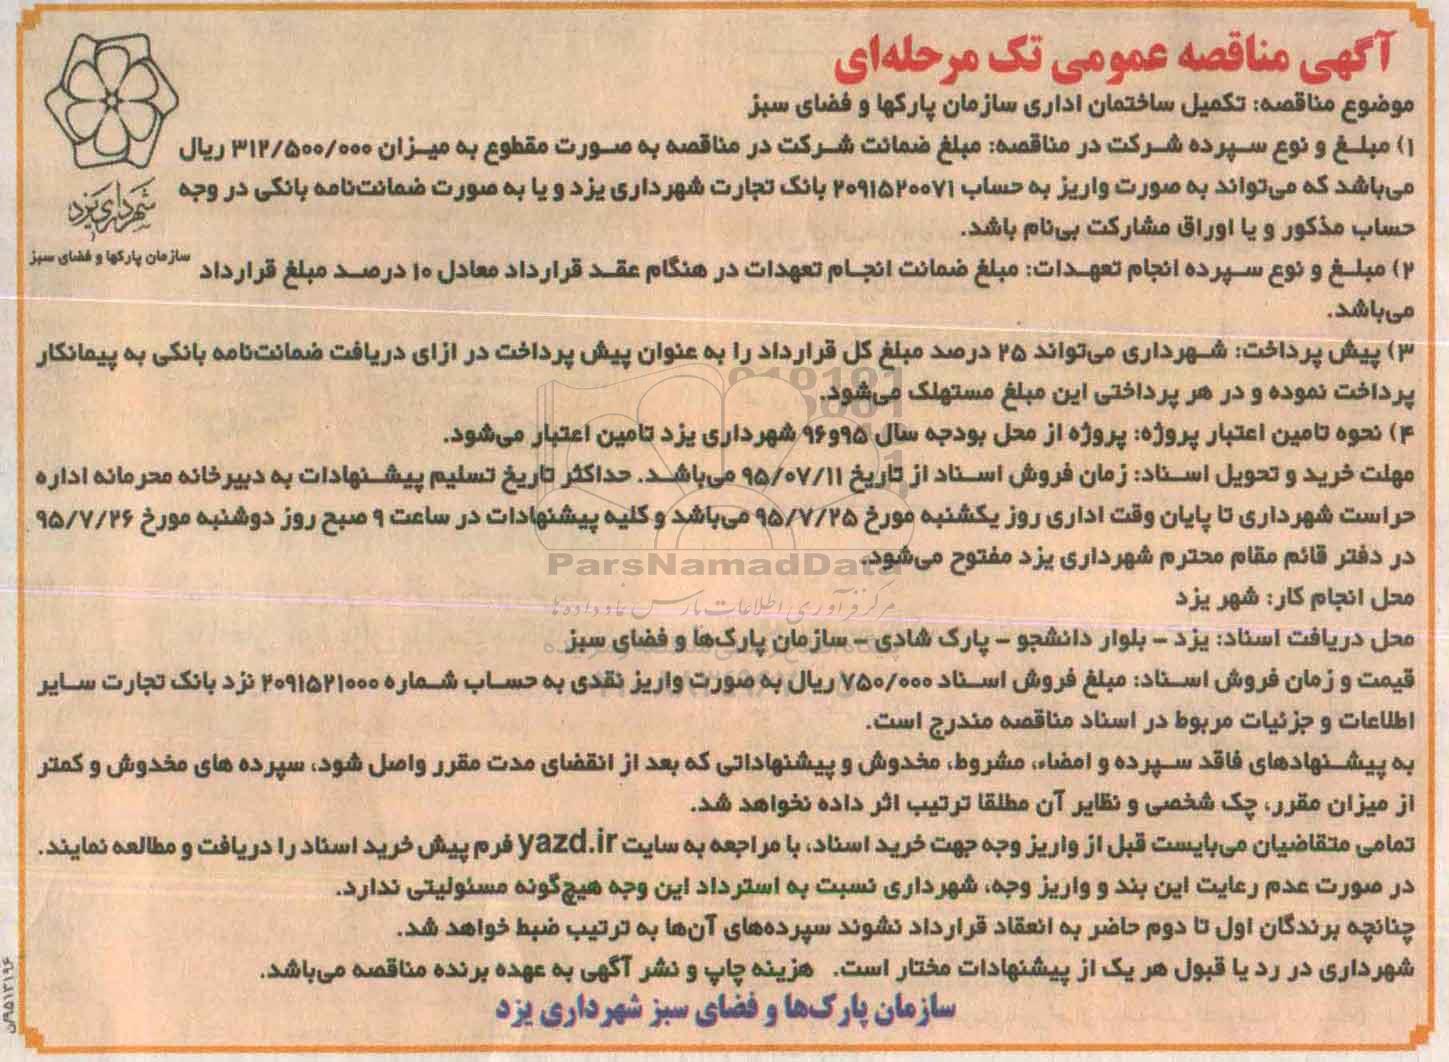 آگهی مناقصه عمومی تک مرحله‌ای
موضوع مناقصه: تکمیل ساختمان اداری سازمان پارکها و فضای سبز
۱) مبلغ و نوع سپرده شرکت در مناقصه: مبلغ ضمانت شرکت در مناقصه به صورت مقطوع به میزان ۳۱۲/۵۰۰/۰۰۰ ریال
می‌باشد که می‌تواند به صورت واریز به حساب ۲۰۹۱۵۲۰۰۷۱ بانک تجارت شهرداری یزد و یا به صورت ضمانت‌نامه بانکی در وجه
حساب مذکور و یا اوراق مشارکت بی‌نام باشد.
شهرداری یزد
سازمان پارکها و فضای سبز
۲) مبلغ و نوع سپرده انجام تعهدات: مبلغ ضمانت انجام تعهدات در هنگام عقد قرارداد معادل ۱۰ درصد مبلغ قرارداد
می‌باشد.
۳) پیش پرداخت: شهرداری می‌تواند ۲۵ درصد مبلغ کل قرارداد را به عنوان پیش پرداخت در ازای دریافت ضمانت‌نامه بانکی به پیمانکار
پرداخت نموده و در هر پرداختی این مبلغ مستهلک می‌شود.
۴) نحوه تامین اعتبار پروژه: پروژه از محل بودجه سال ۹۵و۹۶ شهرداری یزد تامین اعتبار می‌شود.
مهلت خرید و تحویل اسناد: زمان فروش اسناد از تاریخ ۹۵/۰۷/۱۱ می‌باشد. حداکثر تاریخ تسلیم پیشنهادات به دبیرخانه محرمانه اداره
حراست شهرداری تا پایان وقت اداری روز یکشنبه مورخ ۹۵/۷/۲۵ می‌باشد و کلیه پیشنهادات در ساعت ۹ صبح روز دوشنبه مورخ ۹۵/۷/۲۶
در دفتر قائم مقام محترم شهرداری یزد مفتوح می‌شود.
ParsNamadData
مرکز فرآوری اطلاعات پارس نماد داده ها
محل انجام کار: شهر یزد
محل دریافت اسناد: یزد - بلوار دانشجو - پارک شادی - سازمان پارک‌ها و فضای سبز
قیمت و زمان فروش اسناد: مبلغ فروش اسناد ۷۵۰/۰۰۰ ریال به صورت واریز نقدی به حساب شماره ۲۰۹۱۵۲۱۰۰۰ نزد بانک تجارت سایر
اطلاعات و جزئیات مربوط در اسناد مناقصه مندرج است.
به پیشنهادهای فاقد سپرده و امضاء، مشروط، مخدوش و پیشنهاداتی که بعد از انقضای مدت مقرر واصل شود، سپرده های مخدوش و کمتر
از میزان مقرر، چک شخصی و نظایر آن مطلقا ترتیب اثر داده نخواهد شد.
تمامی متقاضیان می‌بایست قبل از واریز وجه جهت خرید اسناد، با مراجعه به سایت yazd.ir فرم پیش خرید اسناد را دریافت و مطالعه نمایند.
در صورت عدم رعایت این بند و واریز وجه، شهرداری نسبت به استرداد این وجه هیچ‌گونه مسئولیتی ندارد.
چنانچه برندگان اول تا دوم حاضر به انعقاد قرارداد نشوند سپرده‌های آن‌ها به ترتیب ضبط خواهد شد.
شهرداری در رد یا قبول هر یک از پیشنهادات مختار است. هزینه چاپ و نشر آگهی به عهده برنده مناقصه می‌باشد.
سازمان پارک‌ها و فضای سبز شهرداری یزد